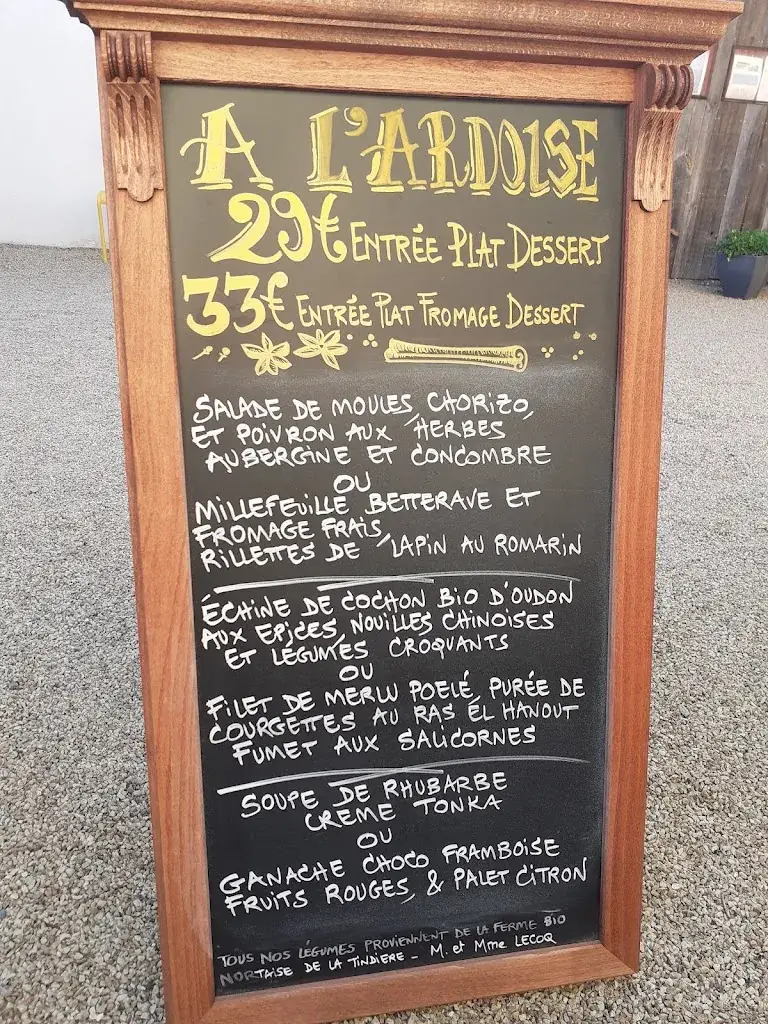 A L'ARDOISE
29€ ENTRÉE PLAT DESSERT
33€ ENTRÉE PLAT FROMAGE DESSERT
SALADE DE MOULES, CHORIZO,
ET POIVRON AUX HERBES
AUBERGINE ET CONCOMBRE
OU
MILLEFEUILLE BETTERAVE ET
FROMAGE FRAIS,
RILLETTES DE LAPIN AU ROMARIN
ÉCHINE DE COCHON BIO D'OUDON
AUX EPICES, NOUILLES CHINOISES
ET LÉGUMES CROQUANTS
OU
FILET DE MERLU POELÉ, PURÉE DE
COURGETTES AU RAS EL HANOUT
FUMET AUX SALICORNES
SOUPE DE RHUBARBE
CREME TONKA
OU
GANACHE CHOCO FRAMBOISE
FRUITS ROUGES, & PALET CITRON
TOUS NOS LÉGUMES PROVIENNENT DE LA FERME BIO
NORTAISE DE LA TINDIERE - M. et Mme LECOQ